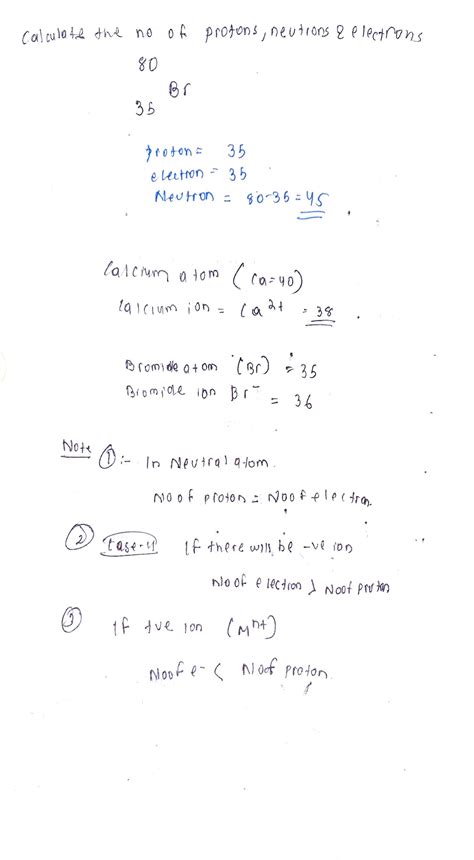 Calculate the no of protons, neutrons & electrons
80
Br
35
proton = 35
electron = 35
Neutron = 80-35 = 45
Calcium atom (Ca=40)
Calcium ion = Ca2+ = 38
Bromide atom (Br) = 35
Bromide ion Br- = 36
Note ① :- In Neutral atom.
No of proton = No of electron.
② Case-II If there will be -ve ion
No of electron > No of proton
③ If +ve ion (Mn+)
No of e- < No of proton.